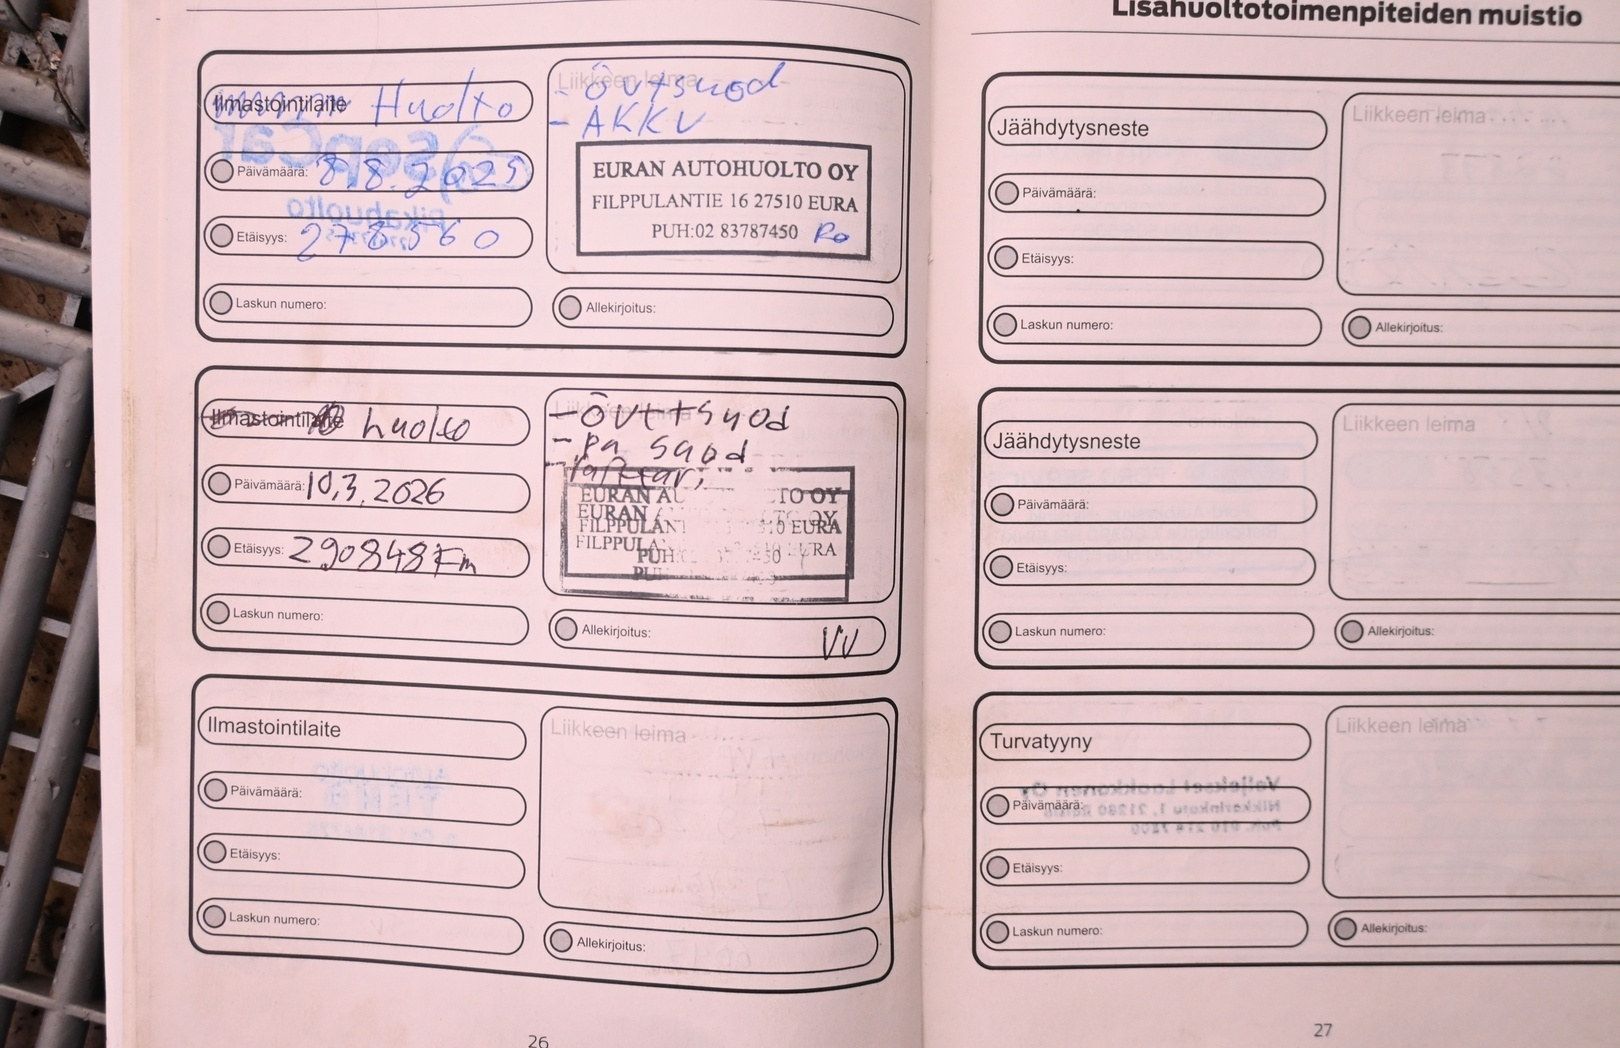 Lisähuoltotoimenpiteiden muistio
Ilmastointilaite Huolto
Päivämäärä: 8.8.2025
Etäisyys: 278560
Laskun numero:
Liikkeen leima
- Öv+suod
- AKKU
EURAN AUTOHUOLTO OY
FILPPULANTIE 16 27510 EURA
PUH:02 83787450
Allekirjoitus:
Ilmastointilaite huolto
Päivämäärä: 10.3.2026
Etäisyys: 290848 Km
Laskun numero:
- Övt+suod
- pa suod
EURAN AU TO OY
EURAN
FILPPULANT 10 EURA
FILPPULA
PUH:
Allekirjoitus: VV
Ilmastointilaite
Päivämäärä:
Etäisyys:
Laskun numero:
Liikkeen leima
Allekirjoitus:
26
Jäähdytysneste
Päivämäärä:
Etäisyys:
Laskun numero:
Liikkeen leima
Allekirjoitus:
Jäähdytysneste
Päivämäärä:
Etäisyys:
Laskun numero:
Liikkeen leima
Allekirjoitus:
Turvatyyny
Päivämäärä:
Etäisyys:
Laskun numero:
Liikkeen leima
Allekirjoitus:
27